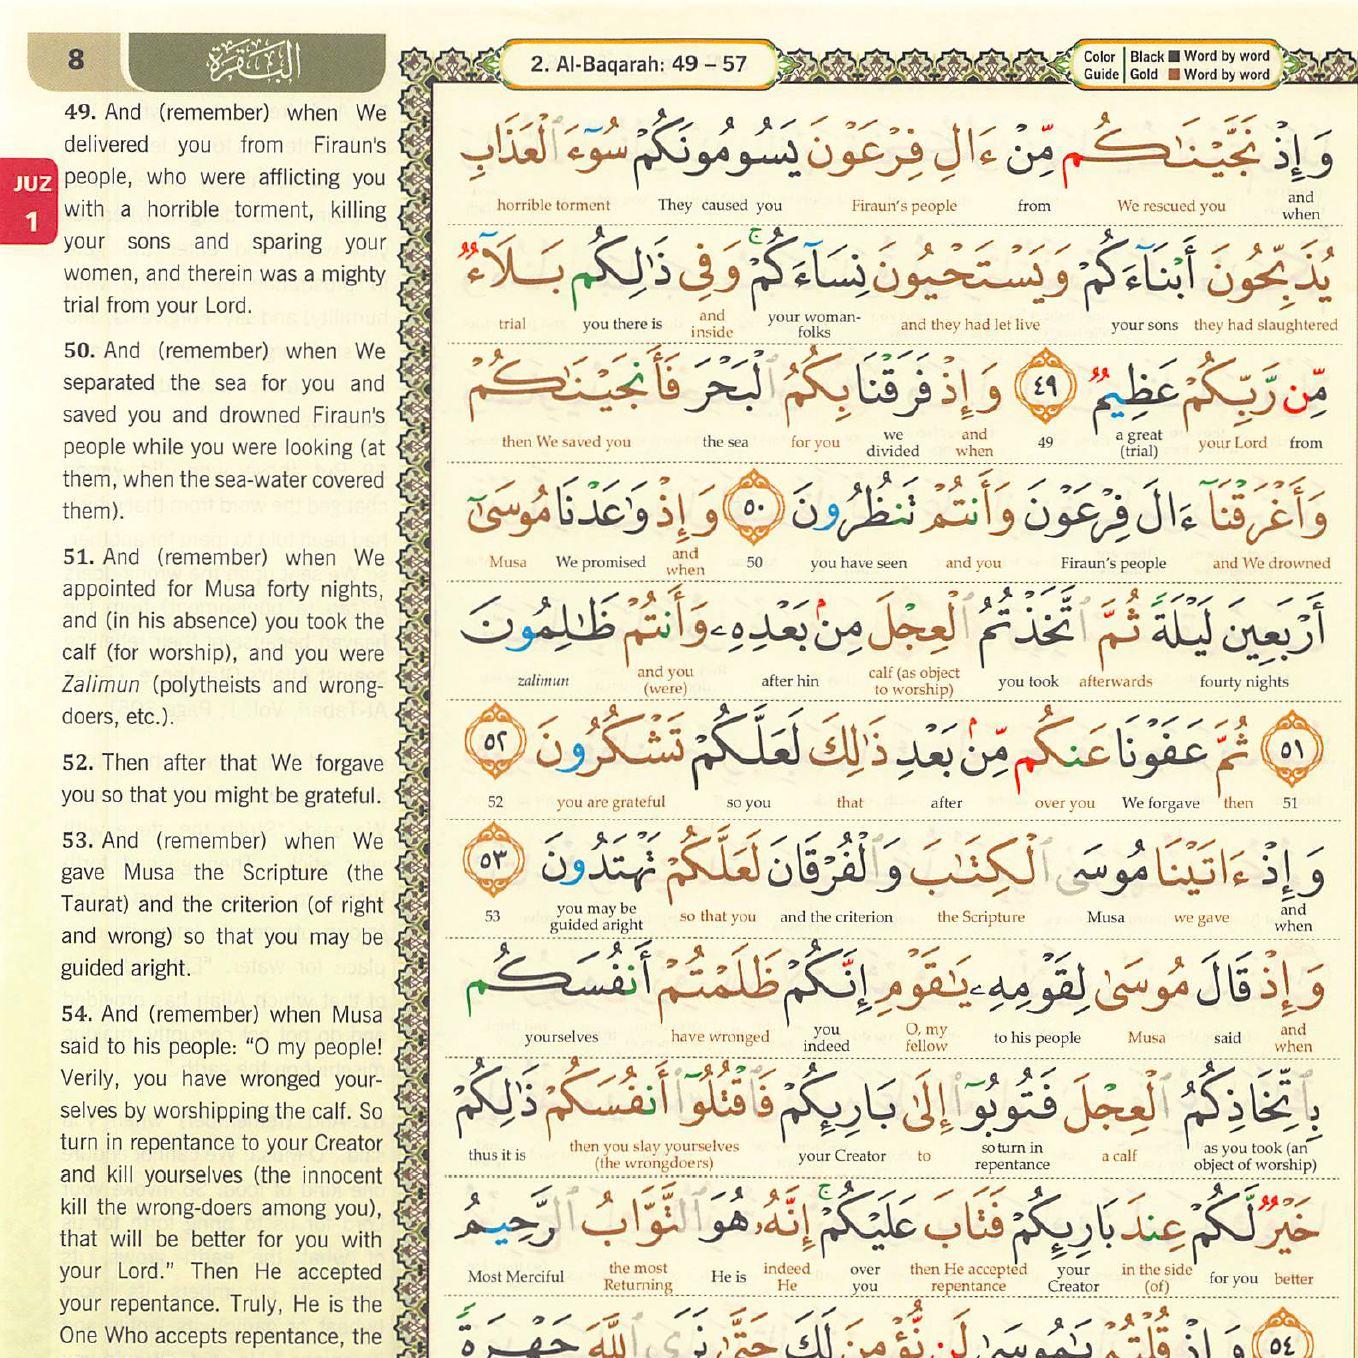 8
البقرة
2. Al-Baqarah: 49 – 57
Color Guide
Black Word by word
Gold Word by word
JUZ
1
49. And (remember) when We
delivered you from Firaun's
people, who were afflicting you
with a horrible torment, killing
your sons and sparing your
women, and therein was a mighty
trial from your Lord.
50. And (remember) when We
separated the sea for you and
saved you and drowned Firaun's
people while you were looking (at
them, when the sea-water covered
them).
51. And (remember) when We
appointed for Musa forty nights,
and (in his absence) you took the
calf (for worship), and you were
Zalimun (polytheists and wrong-
doers, etc.).
52. Then after that We forgave
you so that you might be grateful.
53. And (remember) when We
gave Musa the Scripture (the
Taurat) and the criterion (of right
and wrong) so that you may be
guided aright.
54. And (remember) when Musa
said to his people: “O my people!
Verily, you have wronged your-
selves by worshipping the calf. So
turn in repentance to your Creator
and kill yourselves (the innocent
kill the wrong-doers among you),
that will be better for you with
your Lord.” Then He accepted
your repentance. Truly, He is the
One Who accepts repentance, the
وَإِذْ نَجَّيْنَـٰكُم مِّنْ ءَالِ فِرْعَوْنَ يَسُومُونَكُمْ سُوٓءَ ٱلْعَذَابِ
horrible torment They caused you Firaun's people from We rescued you and when
يُذَبِّحُونَ أَبْنَآءَكُمْ وَيَسْتَحْيُونَ نِسَآءَكُمْ ۚ وَفِى ذَٰلِكُم بَلَآءٌ
trial you there is and inside your woman-folks and they had let live your sons they had slaughtered
مِّن رَّبِّكُمْ عَظِيمٌ ٤٩ وَإِذْ فَرَقْنَا بِكُمُ ٱلْبَحْرَ فَأَنجَيْنَـٰكُمْ
then We saved you the sea for you we divided and when 49 a great (trial) your Lord from
وَأَغْرَقْنَآ ءَالَ فِرْعَوْنَ وَأَنتُمْ تَنظُرُونَ ٥٠ وَإِذْ وَٰعَدْنَا مُوسَىٰٓ
Musa We promised and when 50 you have seen and you Firaun's people and We drowned
أَرْبَعِينَ لَيْلَةً ثُمَّ ٱتَّخَذْتُمُ ٱلْعِجْلَ مِنۢ بَعْدِهِۦ وَأَنتُمْ ظَـٰلِمُونَ
zalimun and you (were) after hin calf (as object to worship) you took afterwards fourty nights
٥١ ثُمَّ عَفَوْنَا عَنكُم مِّنۢ بَعْدِ ذَٰلِكَ لَعَلَّكُمْ تَشْكُرُونَ ٥٢
52 you are grateful so you that after over you We forgave then 51
وَإِذْ ءَاتَيْنَا مُوسَى ٱلْكِتَـٰبَ وَٱلْفُرْقَانَ لَعَلَّكُمْ تَهْتَدُونَ ٥٣
53 you may be guided aright so that you and the criterion the Scripture Musa we gave and when
وَإِذْ قَالَ مُوسَىٰ لِقَوْمِهِۦ يَـٰقَوْمِ إِنَّكُمْ ظَلَمْتُمْ أَنفُسَكُم
yourselves have wronged you indeed O, my fellow to his people Musa said and when
بِٱتِّخَاذِكُمُ ٱلْعِجْلَ فَتُوبُوٓا۟ إِلَىٰ بَارِئِكُمْ فَٱقْتُلُوٓا۟ أَنفُسَكُمْ ذَٰلِكُمْ
thus it is then you slay yourselves (the wrongdoers) your Creator to so turn in repentance a calf as you took (an object of worship)
خَيْرٌ لَّكُمْ عِندَ بَارِئِكُمْ فَتَابَ عَلَيْكُمْ ۚ إِنَّهُۥ هُوَ ٱلتَّوَّابُ ٱلرَّحِيمُ
Most Merciful the most Returning He is indeed He over you then He accepted repentance your Creator in the side (of) for you better
٥٤ وَإِذْ قُلْتُمْ يَـٰمُوسَىٰ لَن نُّؤْمِنَ لَكَ حَتَّىٰ نَرَى ٱللَّهَ جَهْرَةً